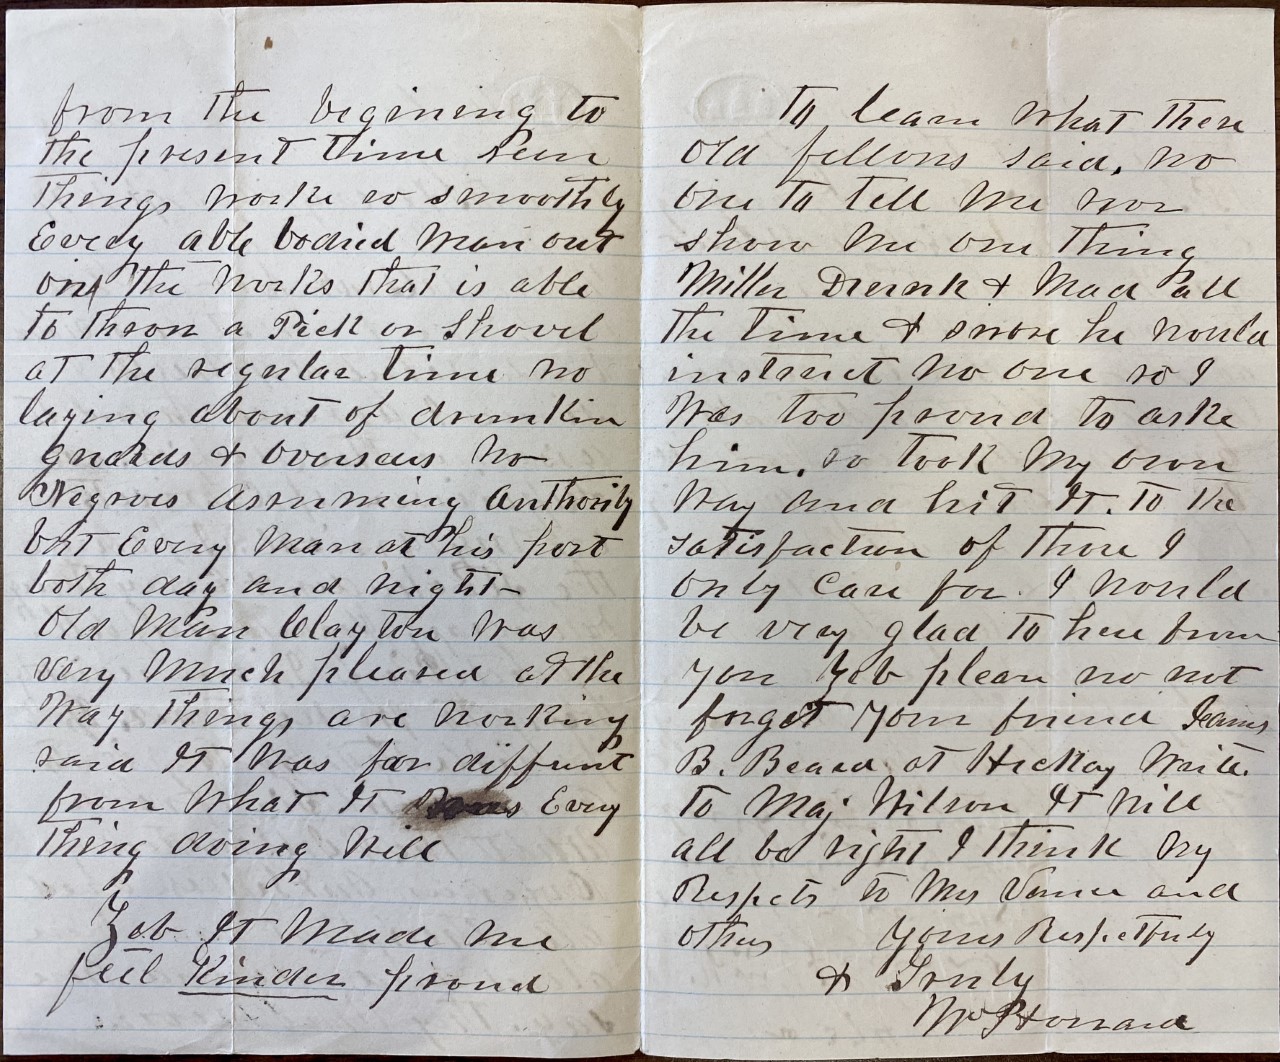 from the begining to
the present time seen
things worke so smoothly
Every able bodied Man out
on the works that is able
to thron a Pick or Shovel
at the regular time no
laying about of drunkin
guards & overseers no
Negroes assuming Authority
but Every Man at his post
both day and night-
Old Man Clayton was
very Much pleased at the
Way things are working
said It was far diffrent
from What It was Every
thing doing Well
Zeb It Made me
feel Kinder proud
To learn What these
old fellows said, no
one to tell Me nor
show Me one thing
Miller Drunk & Mad all
the time & swore he would
instruct no one so I
Was too proud to aske
him, so took My own
Way and hit It. to the
satisfaction of those I
only Care for. I Would
be very glad to here from
you Zeb please no not
forget your friend Jeams
B. Beard at Hickoy Write.
to Maj Wilson It Will
all be right I think My
Respects to Mrs Vance and
others Yours Respectfuly
& Truly
Wm P Howard